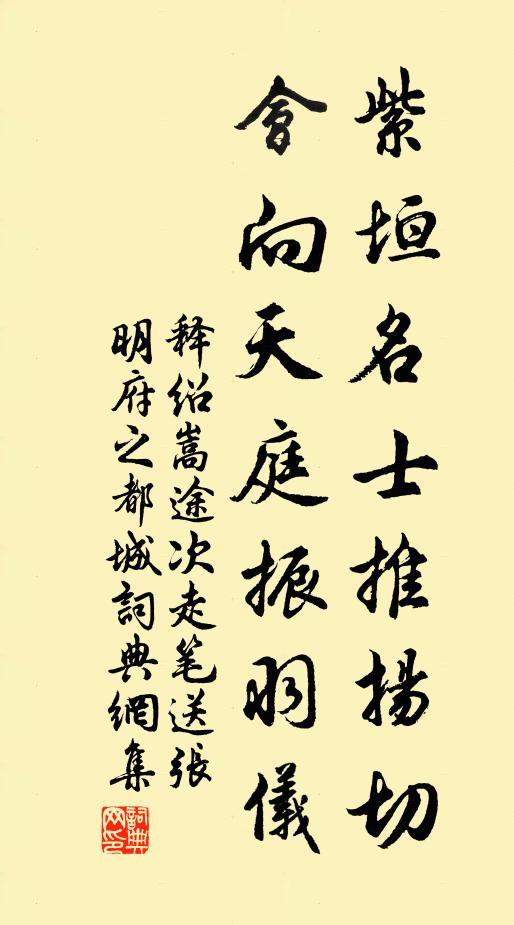 紫垣名士推揚切
會向天庭振羽儀
释绍嵩途次走笔送張
明府之都城詞典網集
詞典網印